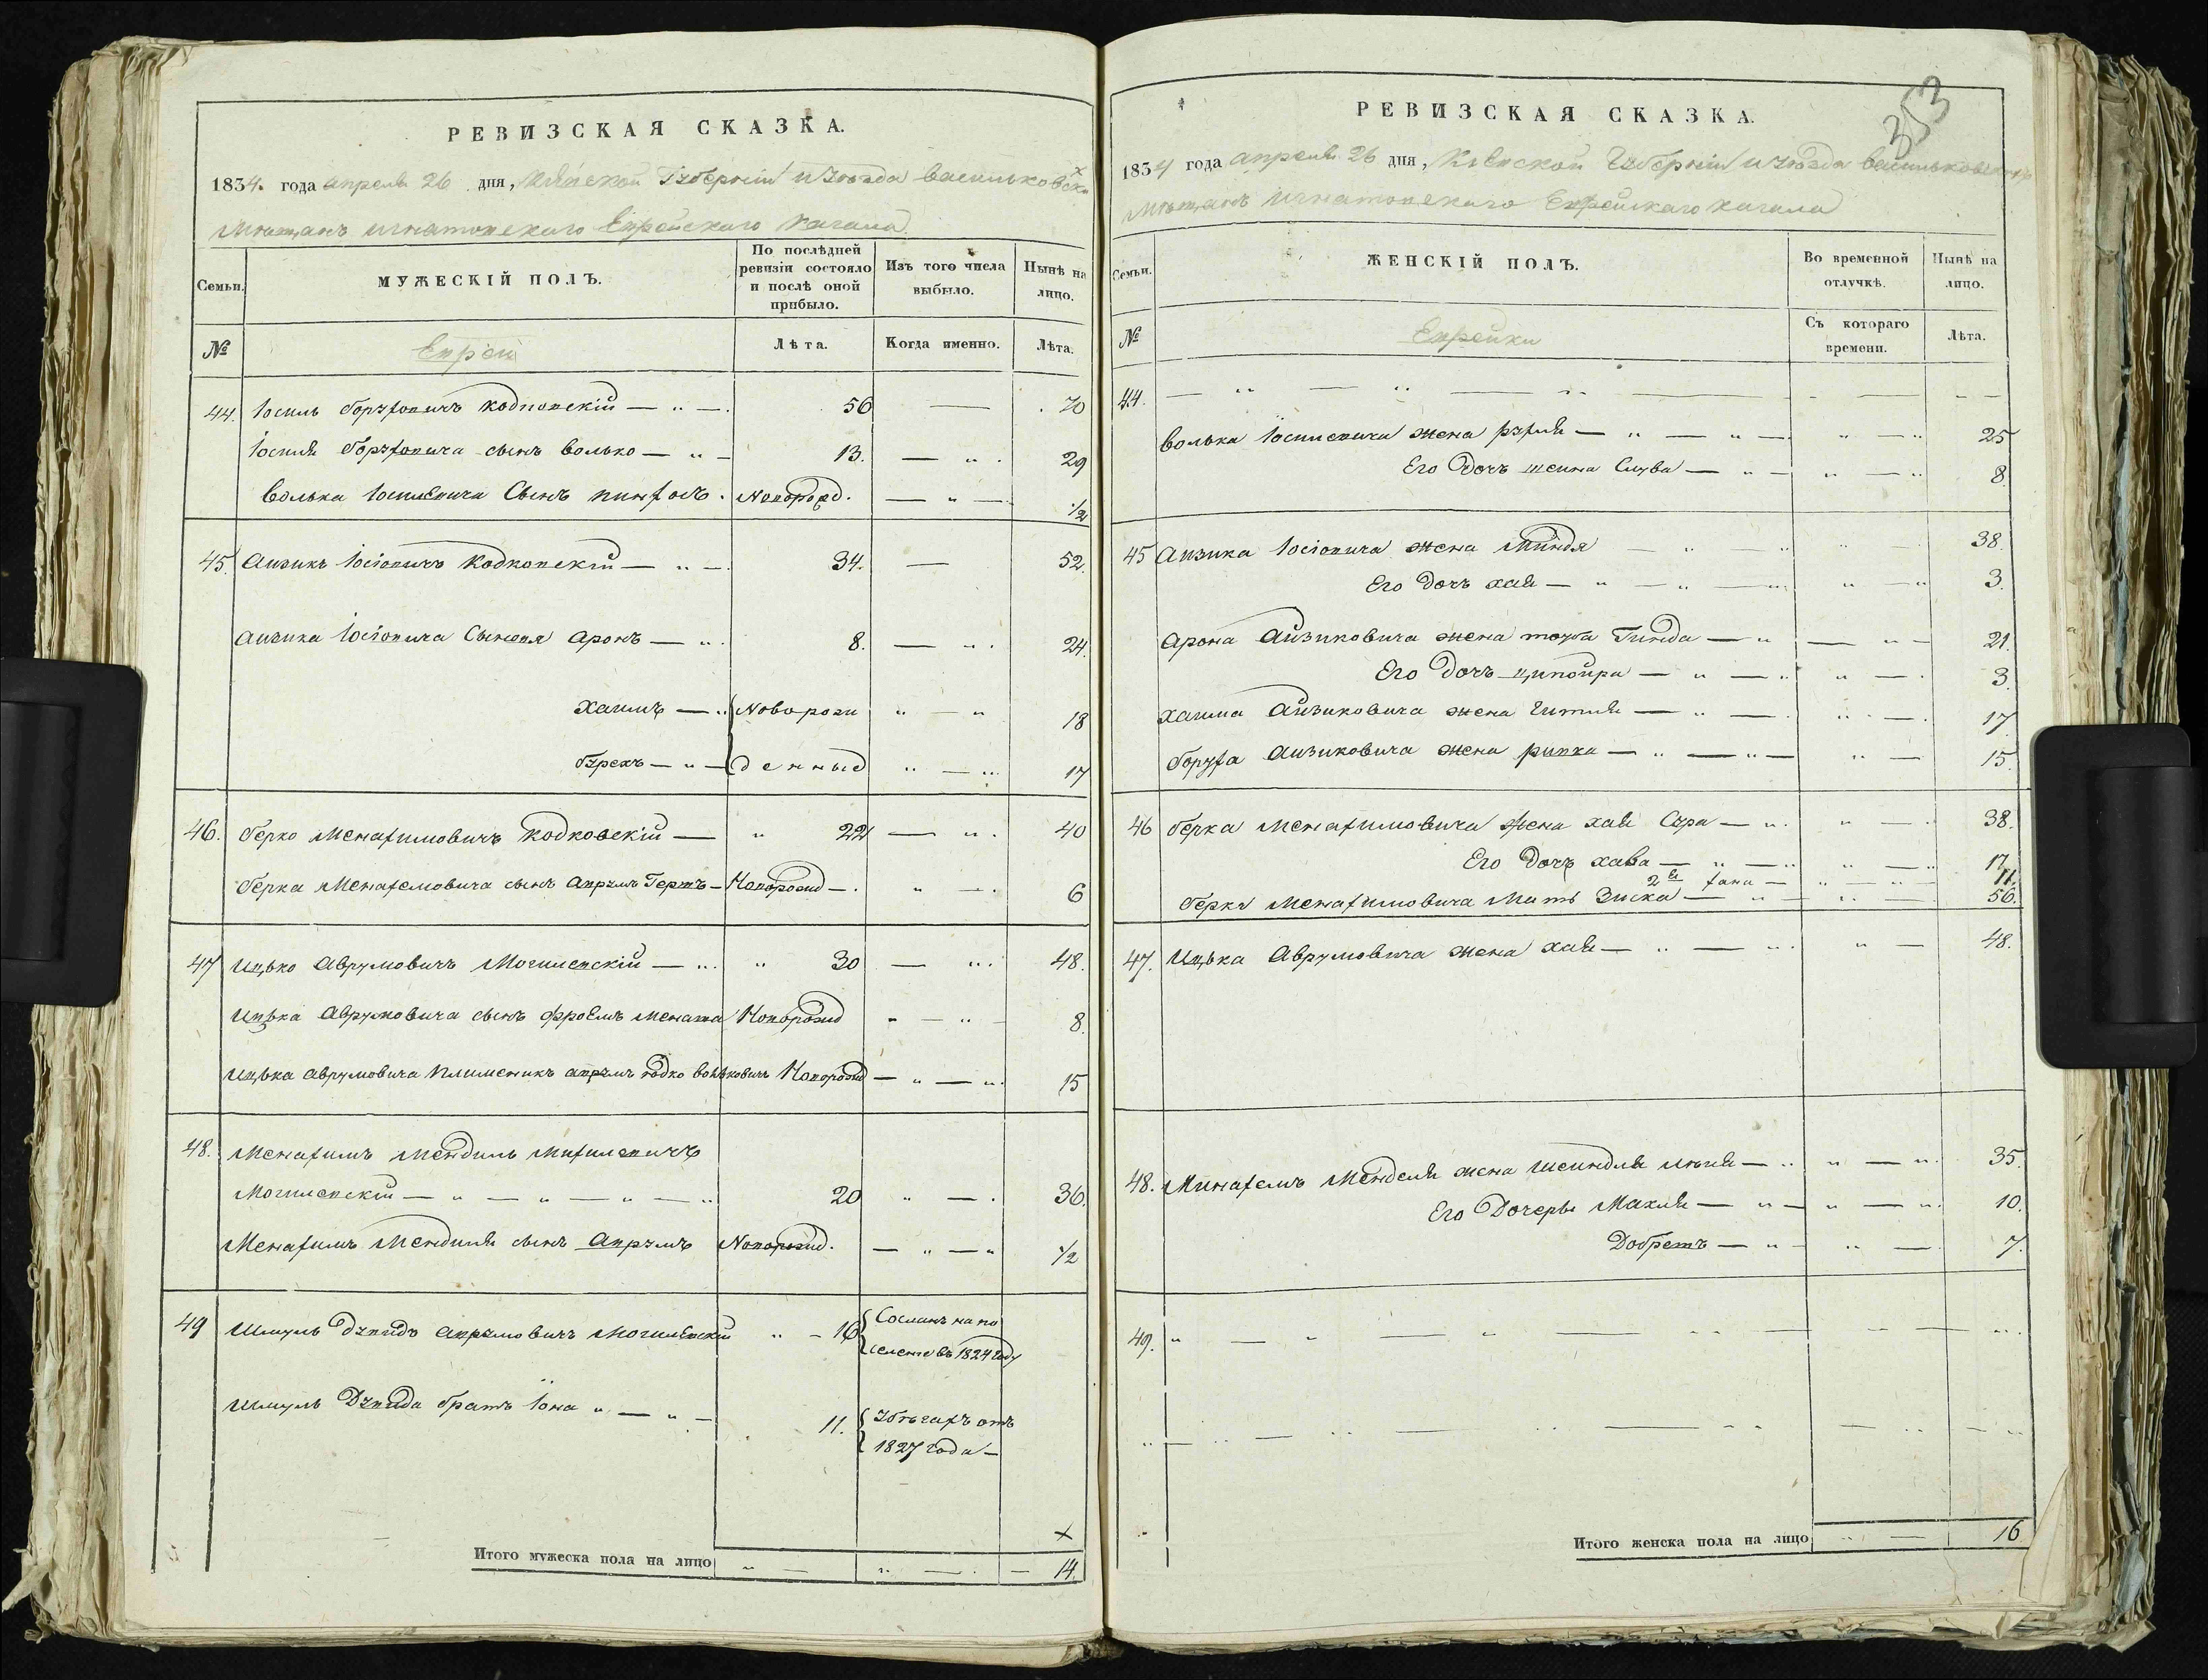 РЕВИЗСКАЯ СКАЗКА.
1834. года апреля 26 дня, Кіевской Губерніи и уѣзда васильковск
мѣщанъ игнатовскаго Еврейскаго кагала
Семьи.
МУЖЕСКІЙ ПОЛЪ.
По послѣдней ревизіи состояло и послѣ оной прибыло.
Изъ того числа выбыло.
Нынѣ на лицо.
№
Евреи
Лѣта.
Когда именно.
Лѣта.
44. Іосиль Боруховичъ кодковскій 56 70
Іосиля Боруховича сынъ волько 13. 29
Волька Іосилевича Сынъ пинхосъ. Новорожд. 1/2
45. Аизикъ Іосіовичъ Кодковскій 34. 52.
Аизика Іосіовича Сыновя Аронъ 8. 24.
Хаимъ Новорож 18
бурехъ денные 17
46. берко Менахимовичъ Кодковскій 22 40
берка Менахемовича сынъ Аврумъ Гершъ Новорожд 6
47 Ицько Аврумовичъ Могилевскій 30 48.
Ицька Аврумовича сынъ фроимъ менаша Новорожд 8.
Ицька Аврумовича племеникъ аврумъ юдко вольковичъ Новорожд 15
48. Менахимъ Мендиль Михилевичъ
Могилевскій 20 36.
Менахимъ Мендиля сынъ Аврумъ Новорожд. 1/2
49 Шмуль Дувидъ Аврумовичъ Могилевскій 16 Сосланъ на по
селеніе въ 1824 году
Шмуль Дувида братъ Іона 11. Збѣгахъ отъ
1827 года
Итого мужеска пола на лицо 14.
353
РЕВИЗСКАЯ СКАЗКА.
1834 года апреля 26 дня, Кіевской Губерніи и уѣзда васильковскаго
мѣщанъ игнатовскаго Еврейскаго кагала
Семьи.
ЖЕНСКІЙ ПОЛЪ.
Во временной отлучкѣ.
Нынѣ на лицо.
№
Еврейки
Съ котораго времени.
Лѣта.
44.
волька Іосилевича жена рухля 25
Его дочъ шеина Слува 8.
45 Аизика Іосіовича жена Миндя 38.
Его дочъ хая 3.
Арона Айзиковича жена тоуба Гинда 21.
Его дочъ ципойра 3.
хаима Айзиковича жена гитля 17
боруха Аизиковича жена ривка 15.
46 берка Менахимовича жена хая Сура 38.
Его дочъ хава 17,
2я хана 11.
берка Менахимовича мать Зиска 56.
47. Ицька Аврумовича жена хая 48.
48. Минахемъ Менделя жена шеиндля 35.
Его Дочеры Махля 10.
Добрешъ 7.
49.
Итого женска пола на лицо 16